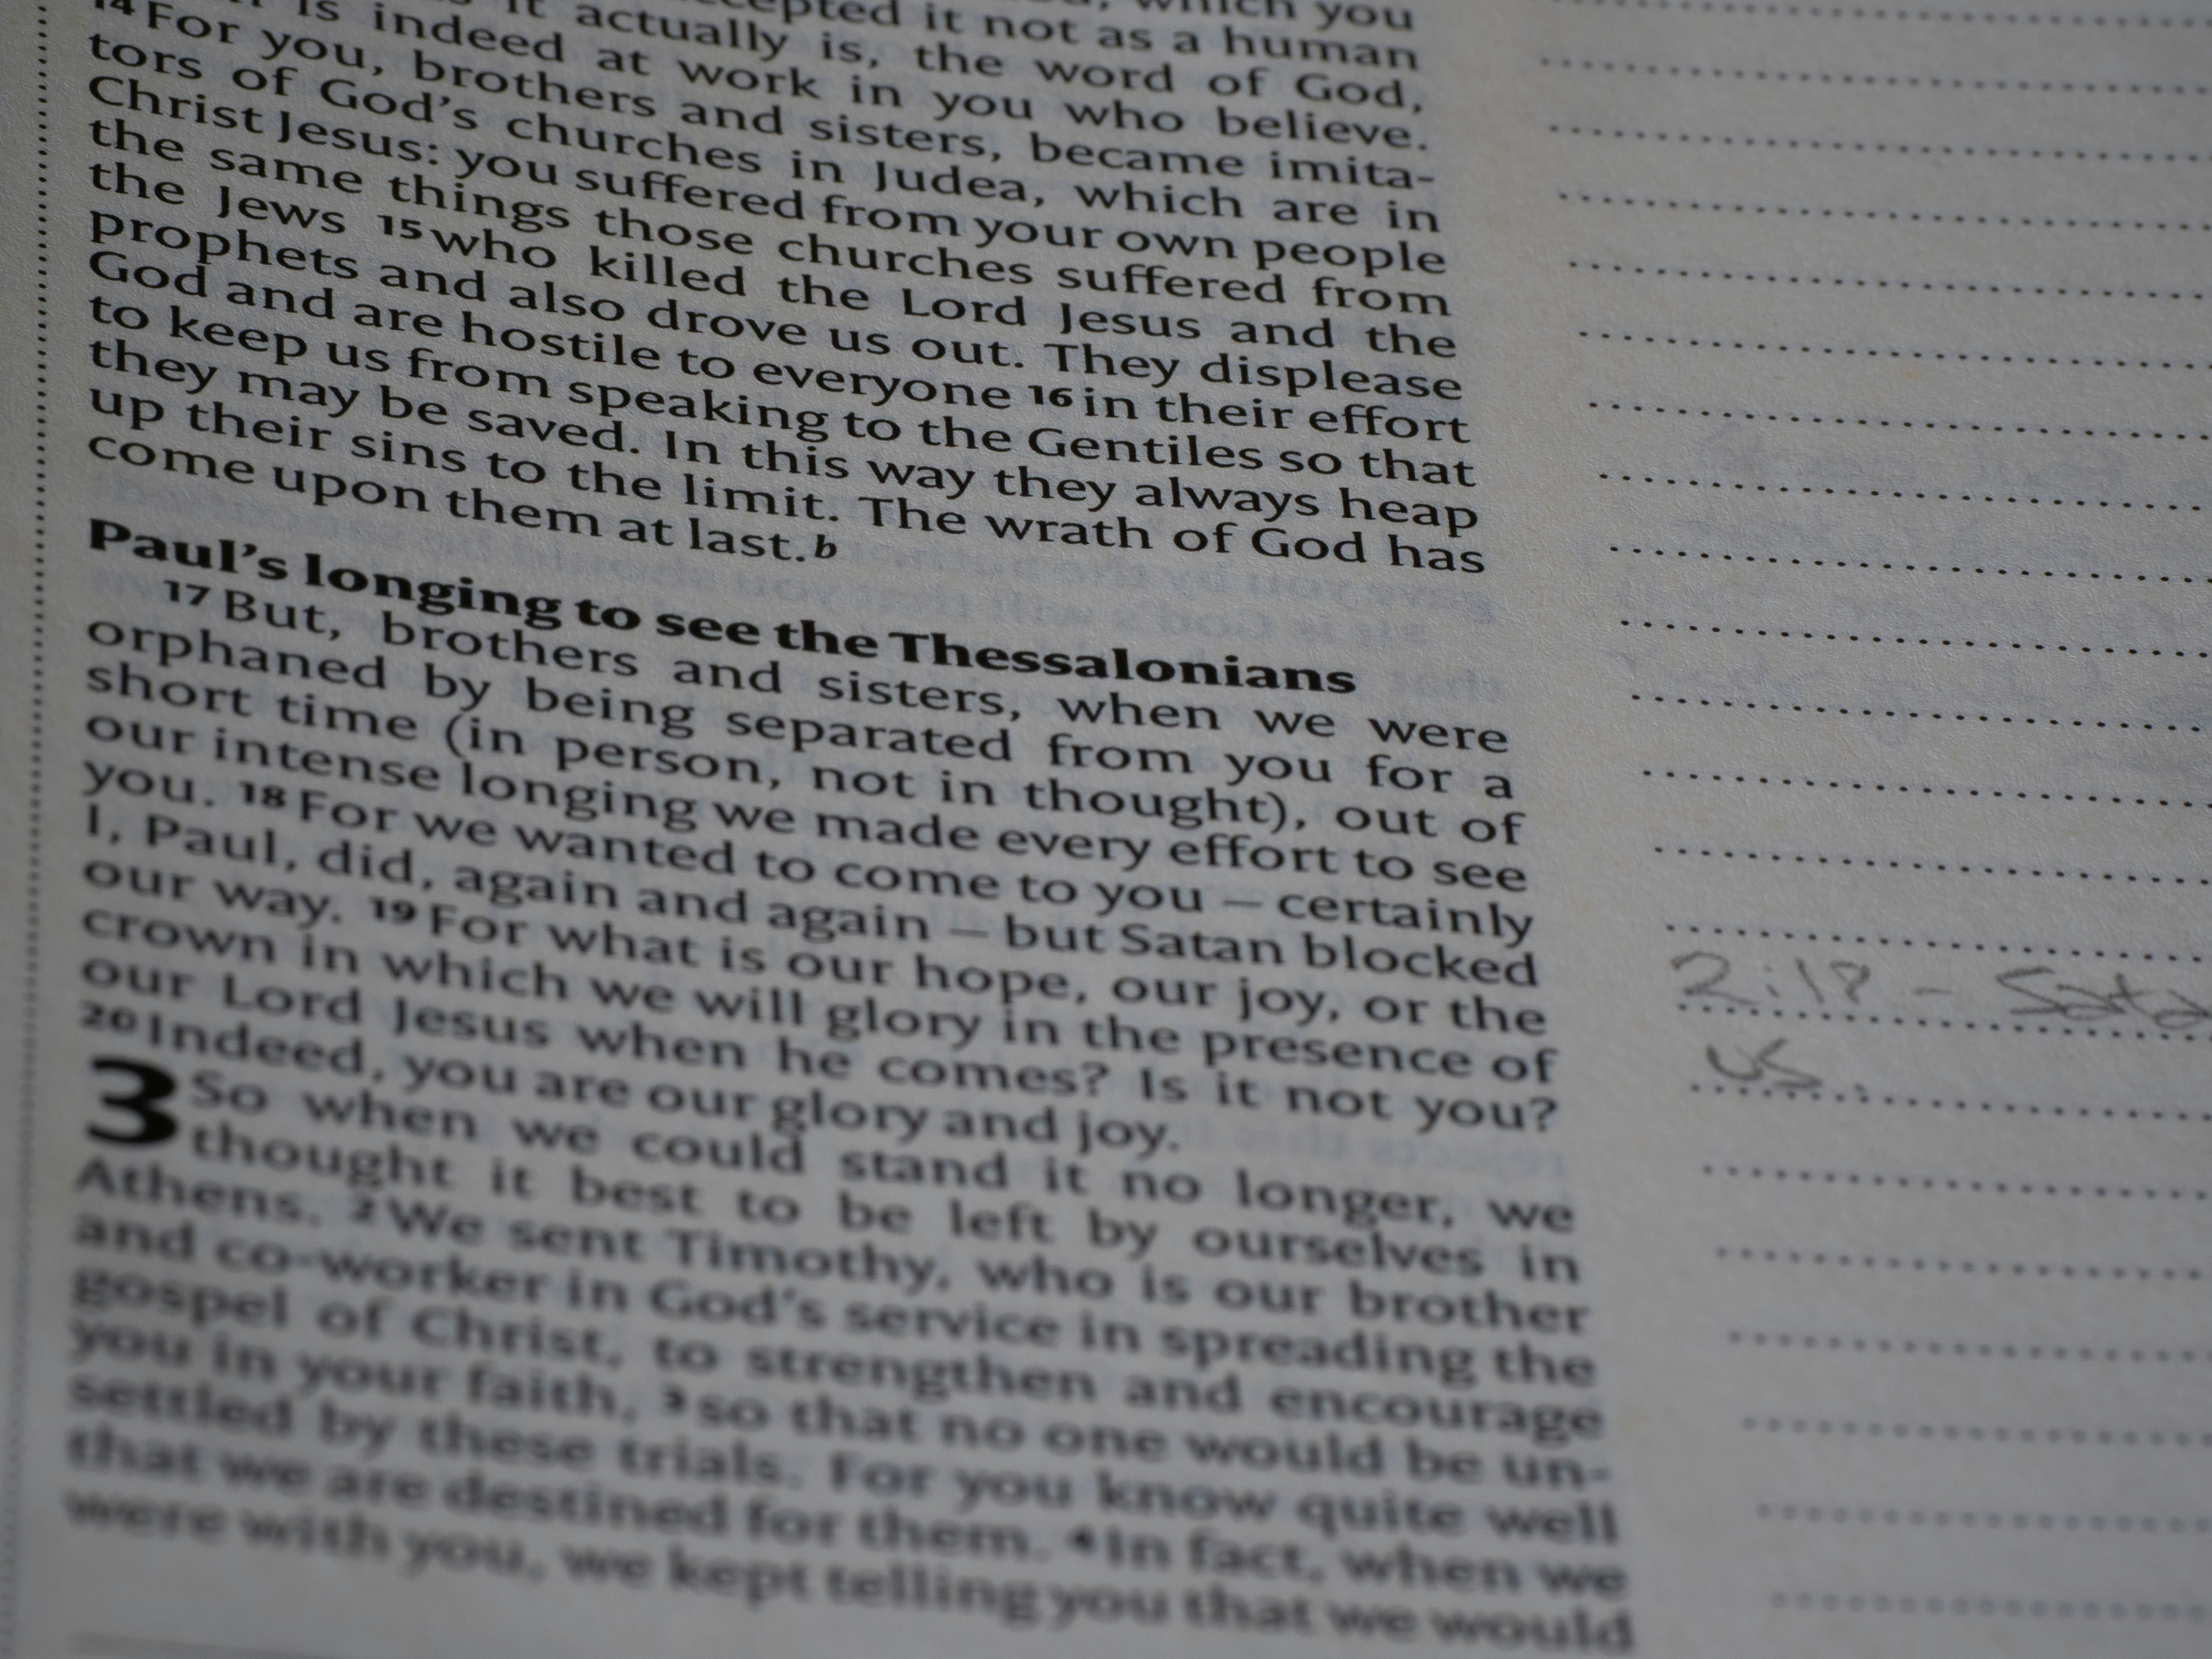 which you
accepted it not as a human
is indeed it actually is, the word of God,
at work in you who believe.
14 For you, brothers and sisters, became imita-
tors of God's churches in Judea, which are in
Christ Jesus: you suffered from your own people
the same things those churches suffered from
the Jews 15 who killed the Lord Jesus and the
prophets and also drove us out. They displease
God and are hostile to everyone 16 in their effort
to keep us from speaking to the Gentiles so that
they may be saved. In this way they always heap
up their sins to the limit. The wrath of God has
come upon them at last.b
Paul's longing to see the Thessalonians
17 But, brothers and sisters, when we were
orphaned by being separated from you for a
short time (in person, not in thought), out of
our intense longing we made every effort to see
you. 18 For we wanted to come to you – certainly
I, Paul, did, again and again – but Satan blocked
our way. 19 For what is our hope, our joy, or the
crown in which we will glory in the presence of
our Lord Jesus when he comes? Is it not you?
20 Indeed, you are our glory and joy.
3 So when we could stand it no longer, we
thought it best to be left by ourselves in
Athens. 2 We sent Timothy, who is our brother
and co-worker in God's service in spreading the
gospel of Christ, to strengthen and encourage
you in your faith, 3 so that no one would be un-
settled by these trials. For you know quite well
that we are destined for them. 4 In fact, when we
were with you, we kept telling you that we would
2:18 -
us